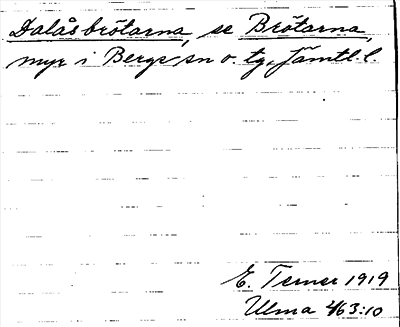 Dalåsbrötarna, se Brötarna,
myr i Bergs sn o. tg, Jämtl. l.
E. Terner 1919
Ulma 4/63:10